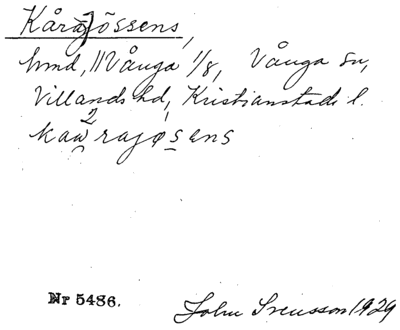 Kåra Jössens,
hmd, 11 Vånga 1/8, Vånga sn,
Villands hd, Kristianstads l.
kaw2rajøsens
Nr 5486.
John Svensson 1929